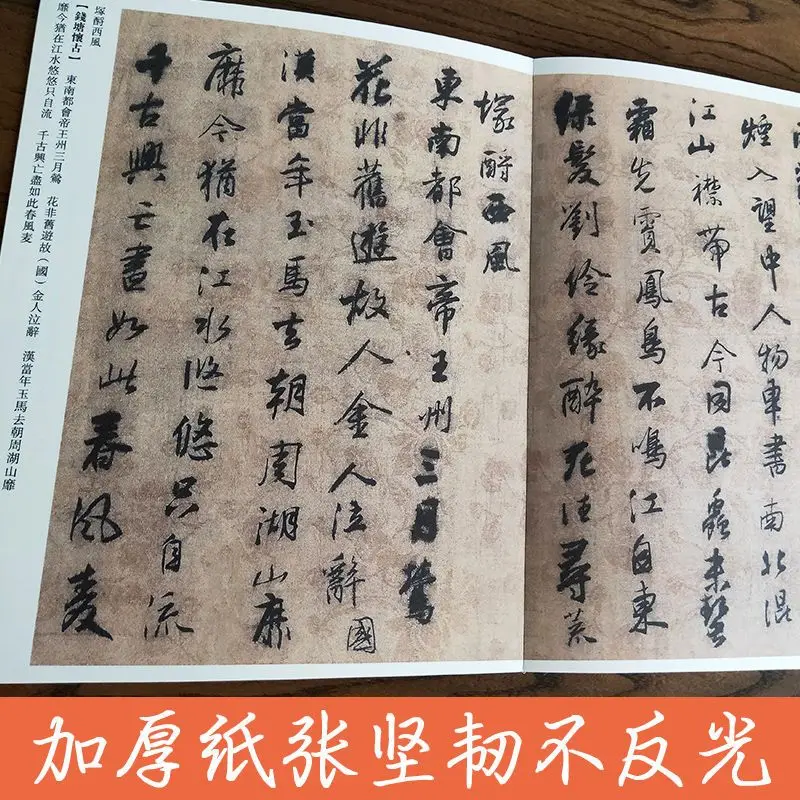 煙入望中人物車書南北混
江山襟帶古今同昆蟲未蟄
霜先實鳳鳥不鳴江自東
綠髮劉伶緣醉死往尋荒
塚酹西風
東南都會帝王州三月鶯
花非舊遊故人金人泣辭國
漢當年玉馬去朝周湖山靡
靡今猶在江水悠悠只自流
千古興亡盡如此春風麦
塚酹西風
【錢塘懷古】 東南都會帝王州三月鶯 花非舊遊故(國)金人泣辭 漢當年玉馬去朝周湖山靡
靡今猶在江水悠悠只自流 千古興亡盡如此春風麦
加厚纸张坚韧不反光